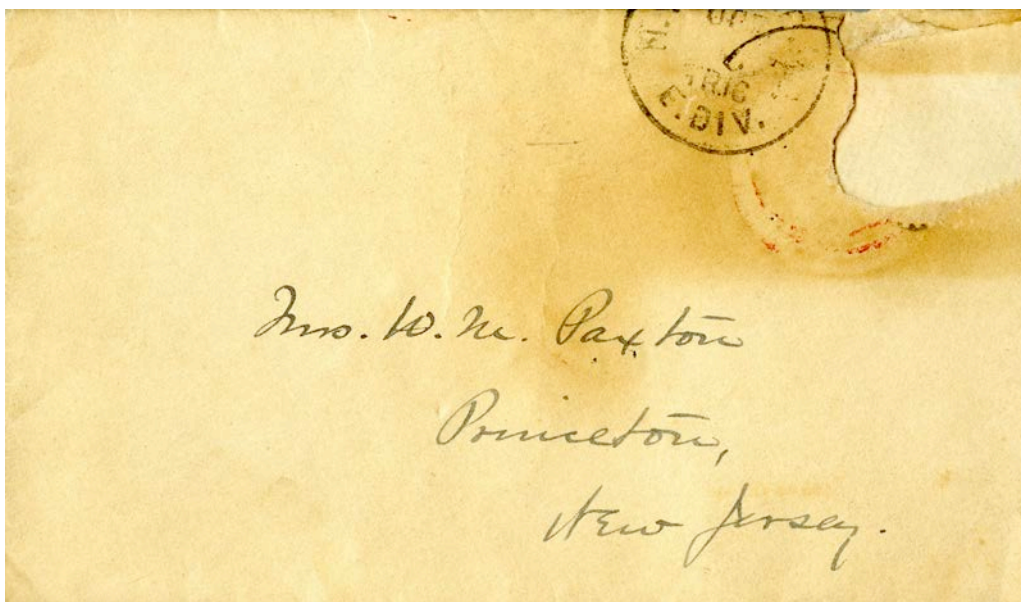 E. DIV.
Mrs. W. M. Paxton
Princeton,
New Jersey.